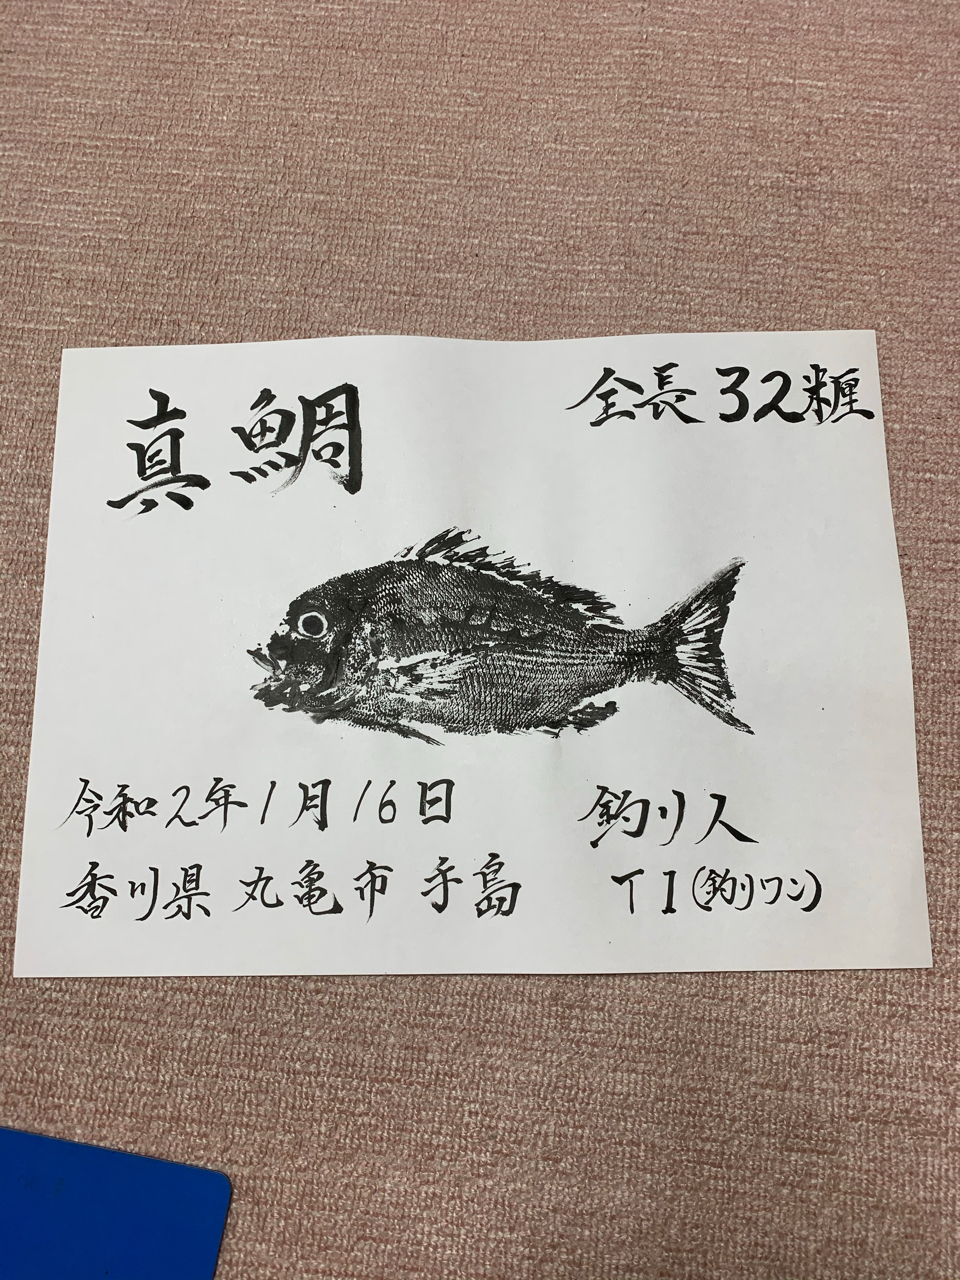 真鯛
全長32糎
令和2年1月16日
香川県 丸亀市 手島
釣り人
TI(釣りワン)